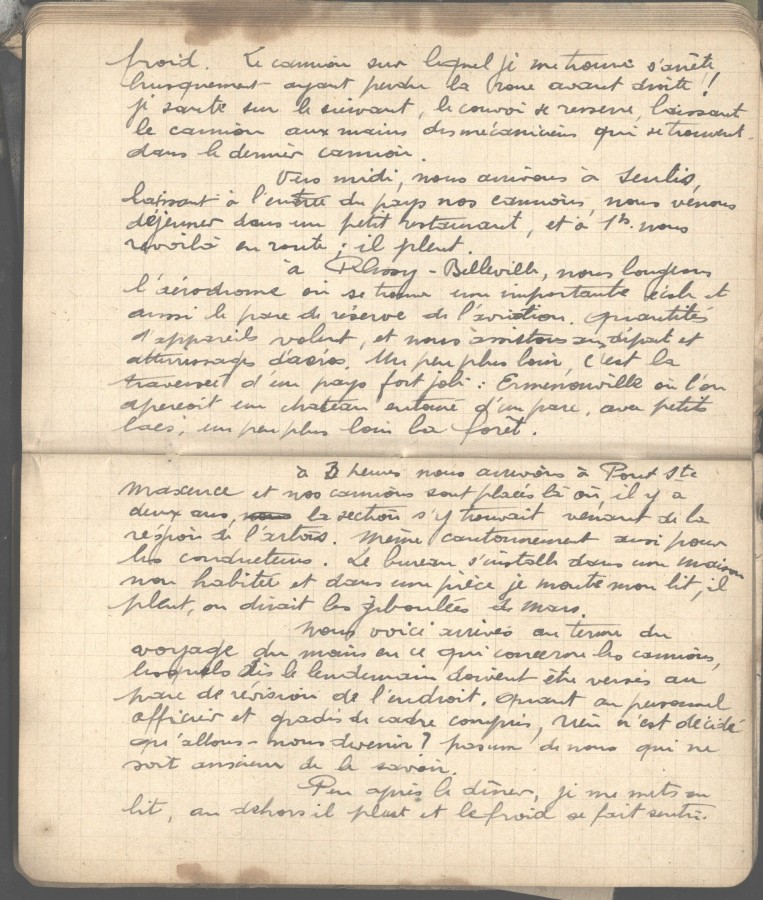 froid. Le camion sur lequel je me trouve s'arrête
brusquement ayant perdu la roue avant droite!!
je saute sur le suivant, le convoi se resserre, laissant
le camion aux mains des mécaniciens qui se trouvent
dans le dernier camion.
Vers midi, nous arrivons à Senlis,
laissant à l'entrée du pays nos camions, nous venons
déjeuner dans un petit restaurant, et à 1h. nous
revoilà en route; il pleut.
à Plessy-Belleville, nous longeons
l'aérodrome où se trouve une importante école et
aussi le parc de réserve de l'aviation. Quantités
d'appareils volent, et nous assistons au départ et
atterrissages d'aéros. Un peu plus loin, c'est la
traversée d'un pays fort joli: Ermenonville où l'on
aperçoit un chateau entouré d'un parc, avec petits
lacs; un peu plus loin la forêt.
à 3 heures nous arrivons à Pont Ste
Maxence et nos camions sont placés là où, il y a
deux ans, nous la section s'y trouvait venant de la
région de l'Artois. Même cantonnement aussi pour
les conducteurs. Le bureau s'installe dans une maison
non habitée et dans une pièce je monte mon lit, il
pleut, on dirait les giboulées de Mars.
Nous voici arrivés au terme du
voyage du moins en ce qui concerne les camions,
lesquels dès le lendemain doivent être versés au
parc de révision de l'endroit. Quant au personnel
officier et gradés de cadre compris, rien n'est décidé
qu'allons-nous devenir? pas un de nous qui ne
soit anxieux de le savoir.
Peu après le dîner, je me mets au
lit, au dehors il pleut et le froid se fait sentir.